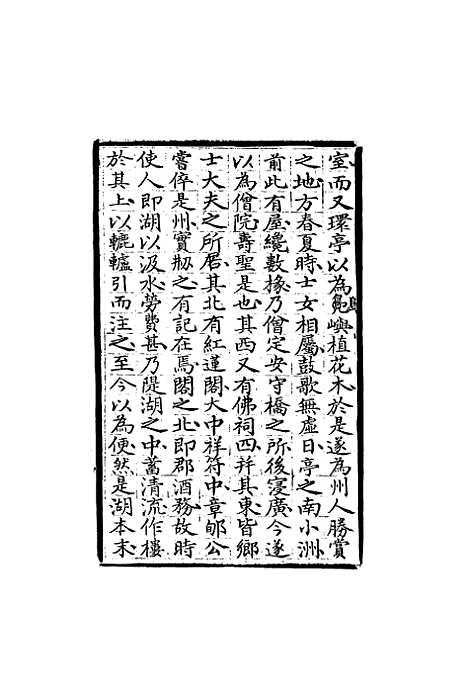 室而又環亭以為島嶼植花木於是遂為州人勝賞
之地方春夏時士女相屬鼓歌無虛日亭之南小洲
前此有屋纔數椽乃僧定安守橋之所後寖廣今遂
以為僧院壽聖是也其西又有佛祠四并其東皆鄉
士大夫之所居其北有紅蓮閣大中祥符中章郇公
嘗倅是州實刱之有記在焉閣之北即郡酒務故時
使人即湖以汲水勞費甚乃隄湖之中蓄清流作樓
於其上以轆轤引而注之至今以為便然是湖本末